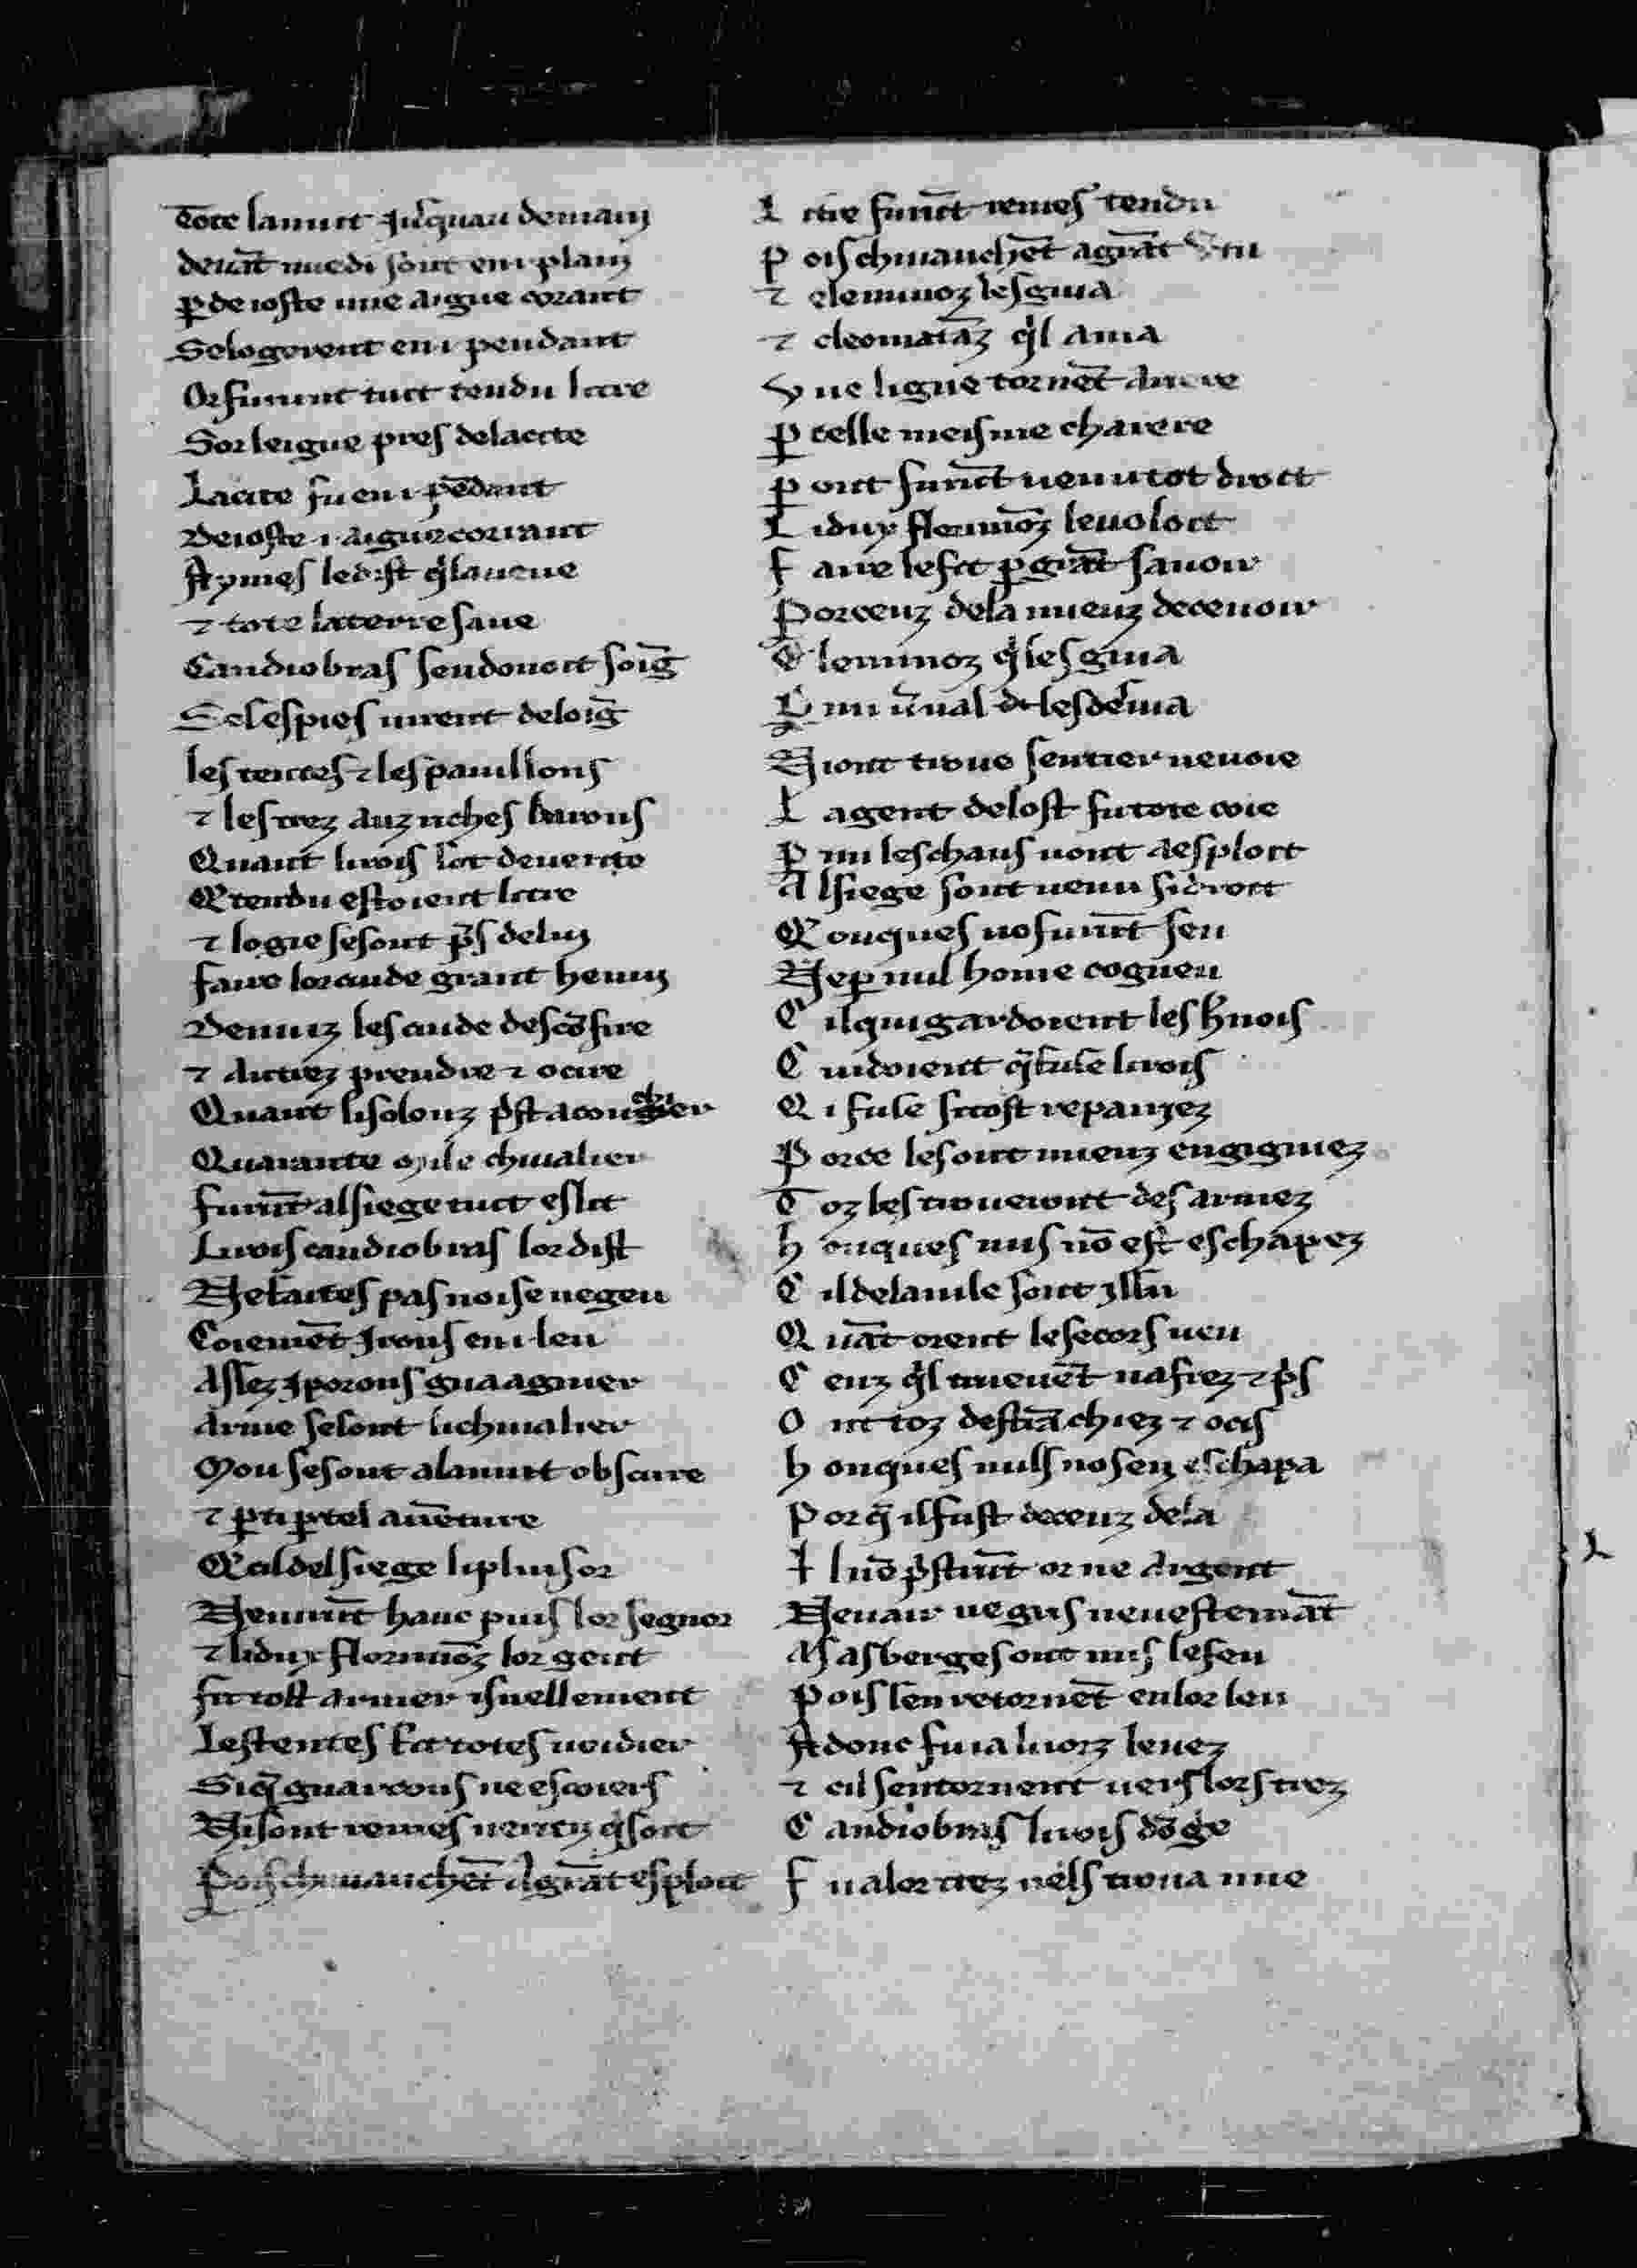 Tote lanuit jusquau demain
deuāt miedi sont en ·i· plain
ꝑ deioste une aigue corant
Selogerent en ·i· pendant
Or furent tuit tendu li tre
Sor leigue pres delacite
Lacite fu en ·i· pēdant
Deioste ·i· aigue corrant
Aymes ledist qͥl aueue
⁊ tote laterre saue
Candiobras sendonoit soiḡ
Se les pies uirent deloiḡ
les tentes ⁊ les pauillons
⁊ les trez auz riches barons
Quant li rois sot deuerite
Q̄ tendu estoient li tre
⁊ logie sesont p̄s deluj
faire lor cuide grant henuj
Deniuz les cuide descōfire
⁊ autrez prendre ⁊ ocire
Quant li solouz pͥst acouchier
Quarante mile chiualier
furēt alsiege tuit eslit
Li rois candiobras lor dist
Ne faites pas noise negeu
Coiemēt jrons en ·i· leu
Assez j porons guaagnier
Arme sesont li chiualier
Mou sesont alanuit obscure
⁊ ꝑ ti ꝑ tel auēture
Q̄ cil del siege li pluisor
Ne uirēt hanc puis lor segnor
⁊ li dux florimōz lor gent
fit tost armer isnellement
Les tentes fit totes uoidier
Si q̄ guarcons ne escoiers
Ni sont remes nentz qͥ soit
Pois chiuauchēt a grāt esploit
L i tre furēt remes tendu
P ois chiuauchēt a grāt vͬtu
⁊ clemmoz les guia
⁊ cleomatāz qͥl ama
V ne ligue tornēt ariere
ꝑ celle meisme chariere
ꝑ oit furēt uenu tot droit
L i dux florimōz le uoloit
F aire le fit ꝑ grāt sauoir
Por ceuz dela mieuz deceuoir
C lemmoz qͥ les guia
P mi ·i· ual  les desuia
N i ont troue sentier ne uoie
L a gent delost fu tote coie
ꝑ mi les chans uont a esploit
A l siege sont uenu si droit
Q̄ onques no furēt seu
Ne ꝑ nul home cogneu
C il qui gardoient les h̄nois
C uidoient q̄ fuse li rois
Q̄ i fuse si tost repariez
P or ce les ont mieuz engigniez
T oz les trouerent desarmez
h onques nus nō est eschapez
C il delauile sont jssu
Q uāt orent le secors ueu
C euz qͥl trueuēt nafrez ⁊ pͥs
O nt toz destrāchiez ⁊ ocis
h onques nuls no sen eschapa
P or q̄ il fust de ceuz dela
I l nō pͥstrēt or ne argent
Ne uair ne gris ne uestemāt
As asberges ont mis le feu
Pois sen retornēt en lor leu
Adonc fu ia li iorz leuez
⁊ cil sentornent uers lors trez
C andiobras li rois dōgͥe
F u a lor trez nels troua mie